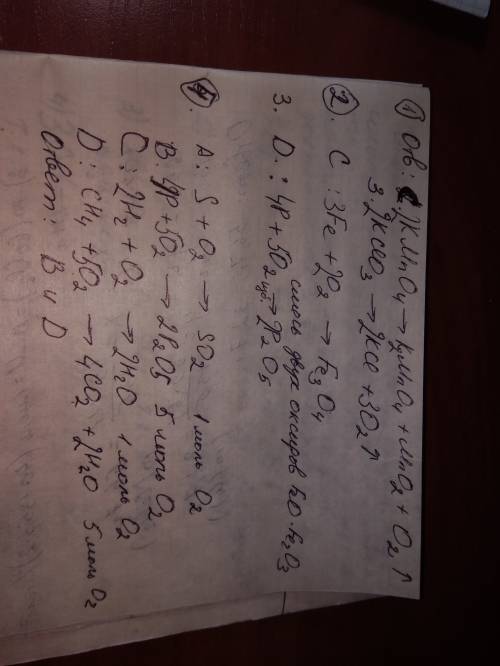 ① Ов: 2)KMnO4 → K2MnO4 + MnO2 + O2 ↑
3. 2KClO3 → 2KCl + 3O2 ↑
②. C : 3Fe + 2O2 → Fe3O4
смесь двух оксидов FeO·Fe2O3
3. D : 4P + 5O2 изб. → 2P2O5
④. A: S + O2 → SO2 1 моль O2
B 4P + 5O2 → 2P2O5 5 моль O2
C: 2H2 + O2 → 2H2O 1 моль O2
D: CH4 + 5O2 → 4CO2 + 2H2O 5 моль O2
Ответ: B и D